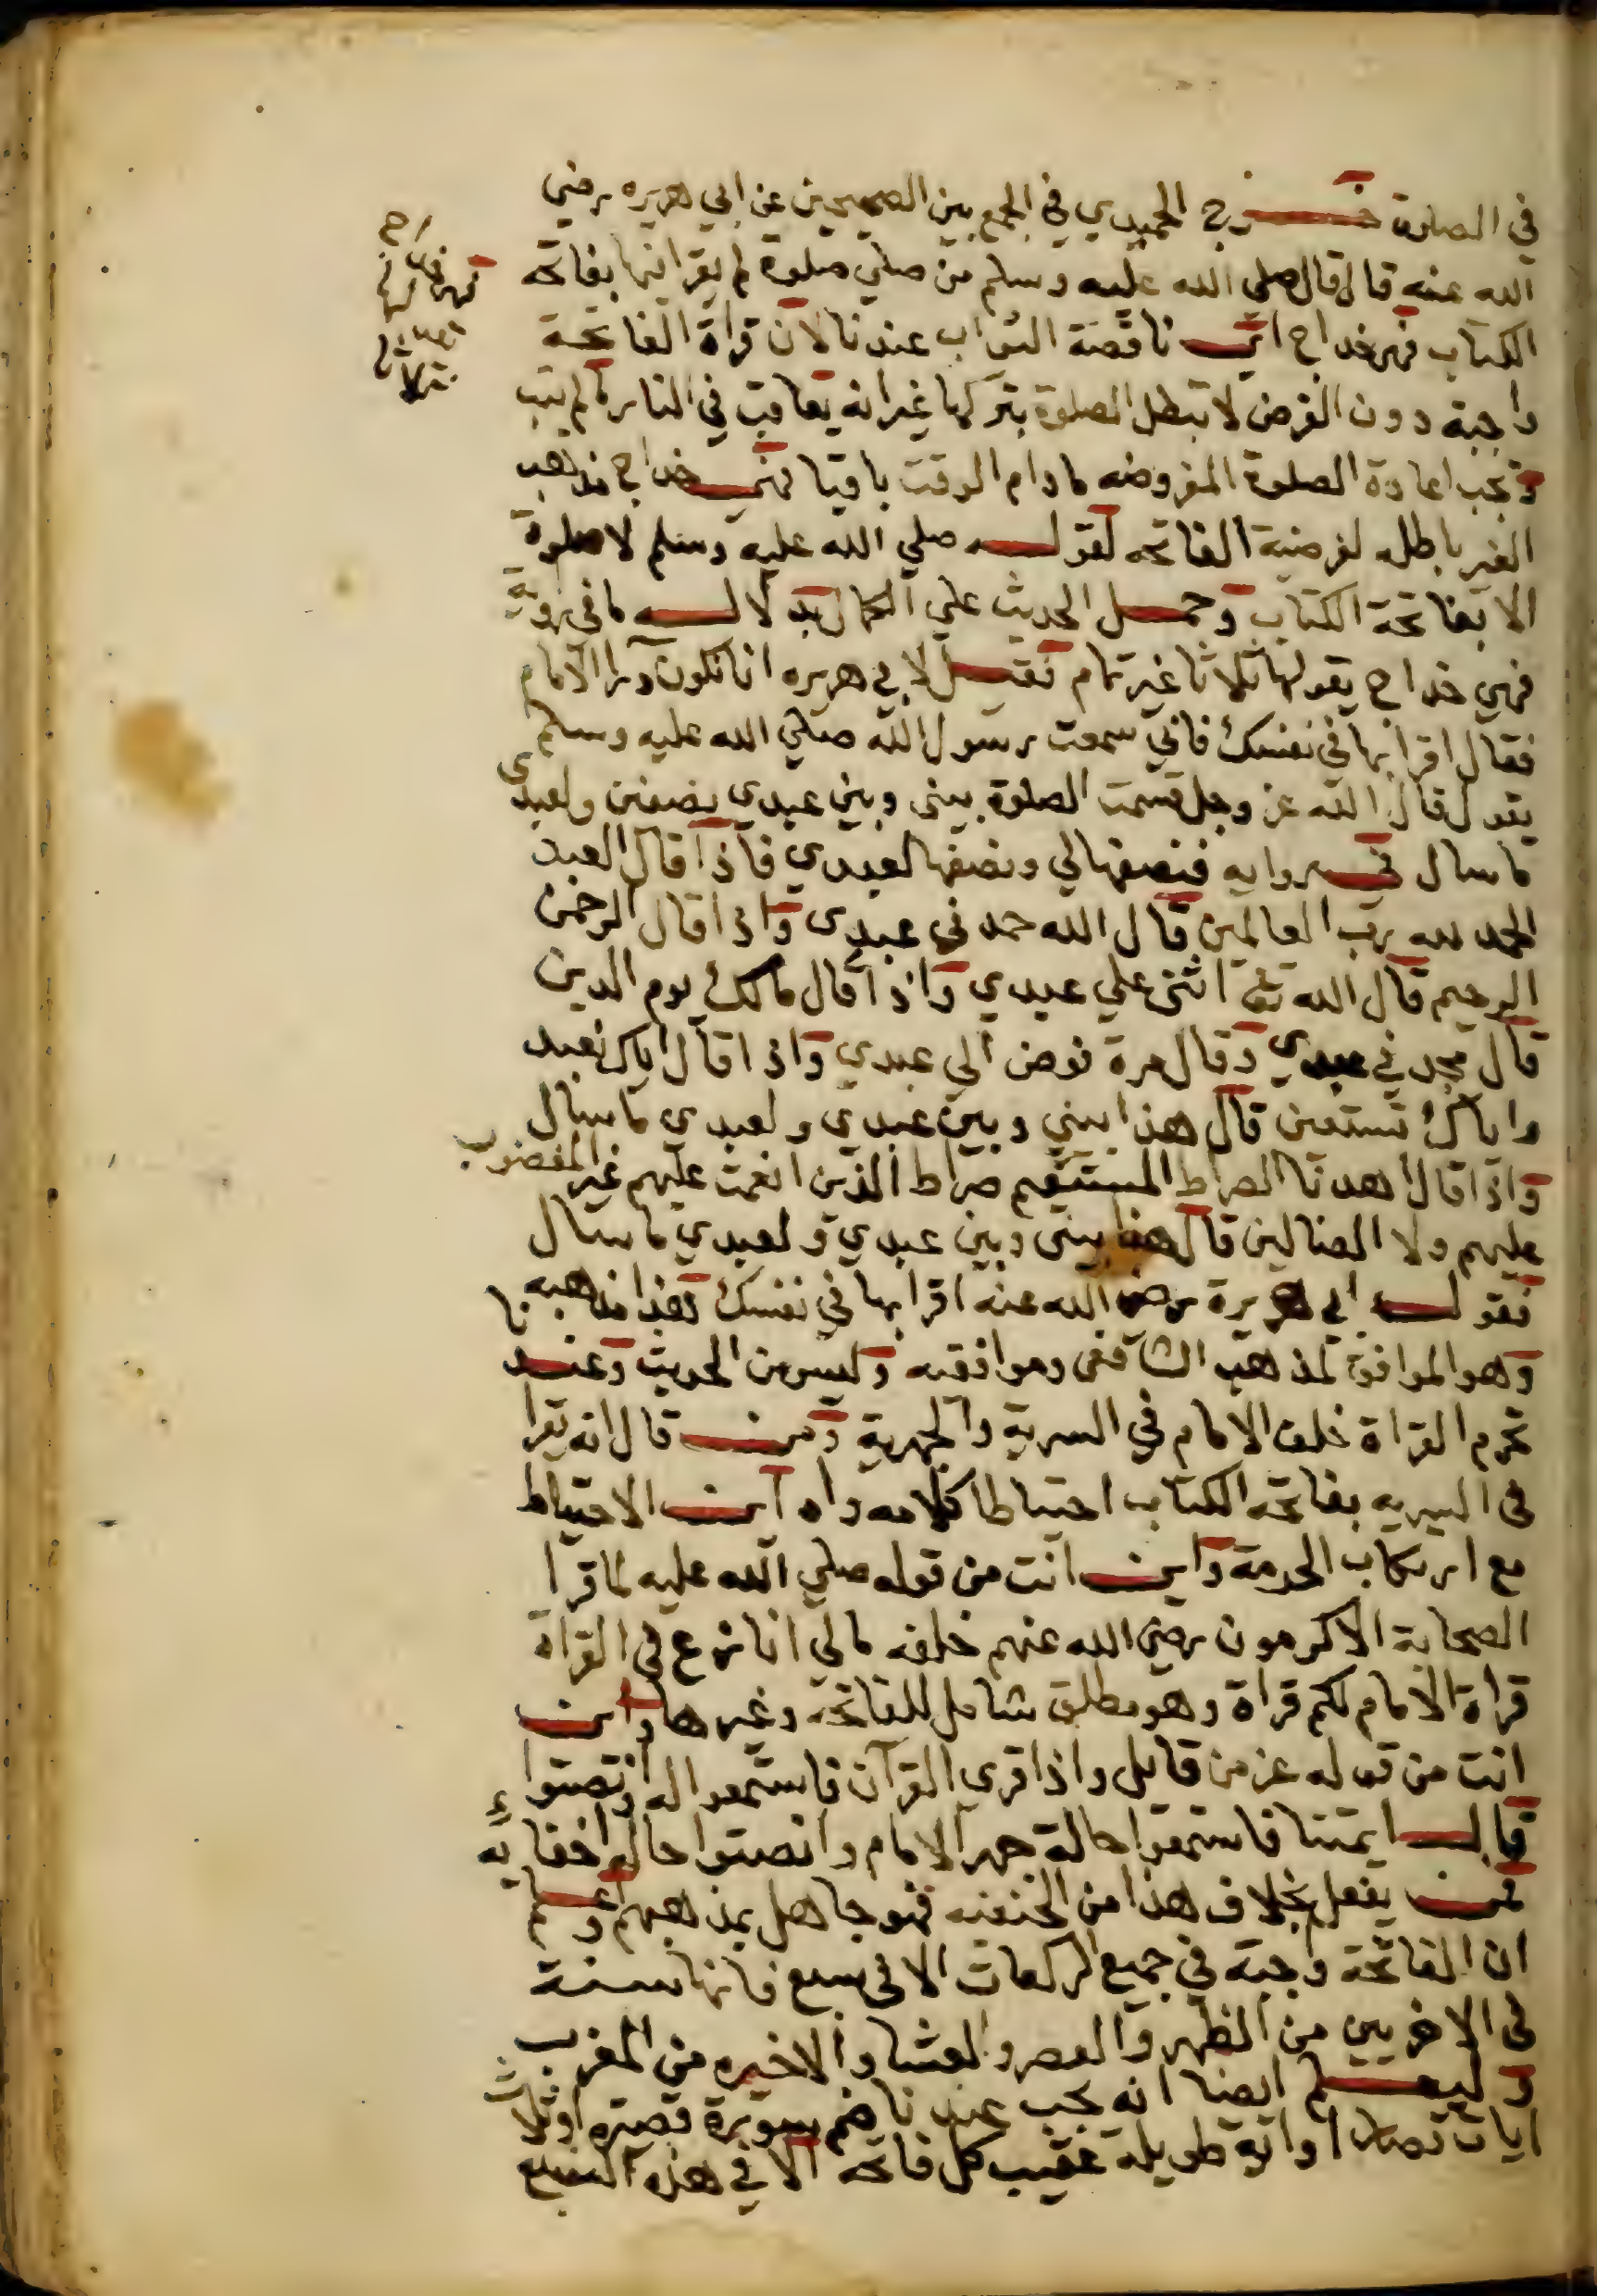 في الصلوة خرج الحميدي في الجمع بين الصحيحين عن ابي هريره رضي
الله عنه قال قال صلي الله عليه وسلم من صلي صلوة لم يقرا فيها بفاتحة
الكتاب فهي خداج اي ناقصة الثواب عندنا لان قراة الفاتحة
واجبة دون الفرض لا تبطل الصلوة بتركها غير انه يعاقب في النار ما لم يتب
وتجب اعادة الصلوة المفروضه مادام الوقت باقيا فمعنى خداج مذهب
الغير باطله لفرضية الفاتحه لقوله صلي الله عليه وسلم لا صلوة
الا بفاتحة الكتاب وحمل الحديث علي الكمال بدلاله ما في رواية
فهي خداج يقولها ثلاثا غير تمام فقيل لابي هريره انا نكون ورا الامام
فقال اقرا بها في نفسك فاني سمعت رسول الله صلي الله عليه وسلم
يقول قال الله عز وجل قسمت الصلوة بيني وبين عبدي نصفين ولعبدي
ما سال في روايه فنصفها لي ونصفها لعبدي فاذا قال العبد
الحمد لله رب العالمين قال الله حمدني عبدي واذا قال الرحمن
الرحيم قال الله تع اثني علي عبدي واذا قال مالك يوم الدين
قال مجدني عبدي وقال مرة فوض الي عبدي واذا قال اياك نعبد
واياك نستعين قال هذا بيني وبين عبدي ولعبدي ما سال
واذا قال اهدنا الصراط المستقيم صراط الذين انعمت عليهم غير المغضوب
عليهم ولا الضالين قال هذا بيني وبين عبدي ولعبدي ما سال
فقول ابي هريرة رضي الله عنه اقرا بها في نفسك فهذا مذهبه
وهو الموافق لمذهب الشافعي وموافقيه وليس من الحديث وعندنا
تحرم القراة خلف الامام في السرية والجهرية ومن قال انه يقرا
في السريه بفاتحة الكتاب احتياطا كلامه واه اين الاحتياط
مع ارتكاب الحرمة واين انت من قوله صلي الله عليه لما قرا
الصحابة الاكرمون رضي الله عنهم خلفه مالي انازع في القراة
قراة الامام لكم قراة وهو مطلق شامل للفاتحة وغيرها واين
انت من قوله عز من قايل واذا قري القرآن فاستمعوا له وانصتوا
قال ايمتنا فاستمعوا حالة جهر الامام وانصتوا حالة اخفايه
فمن يفعل بخلاف هذا من الحنفيه فهو جاهل بمذهبهم واعلم
ان الفاتحة واجبة في جميع الركعات الا في سبع فانها سنة
في الاخريين من الظهر والعصر والعشا والاخيره من المغرب
وليعلم ايضا انه يجب عندنا ضم سورة قصيره او ثلاث
ايات قصار او اية طويلة عقيب كل فاتحة الا في هذه السبع